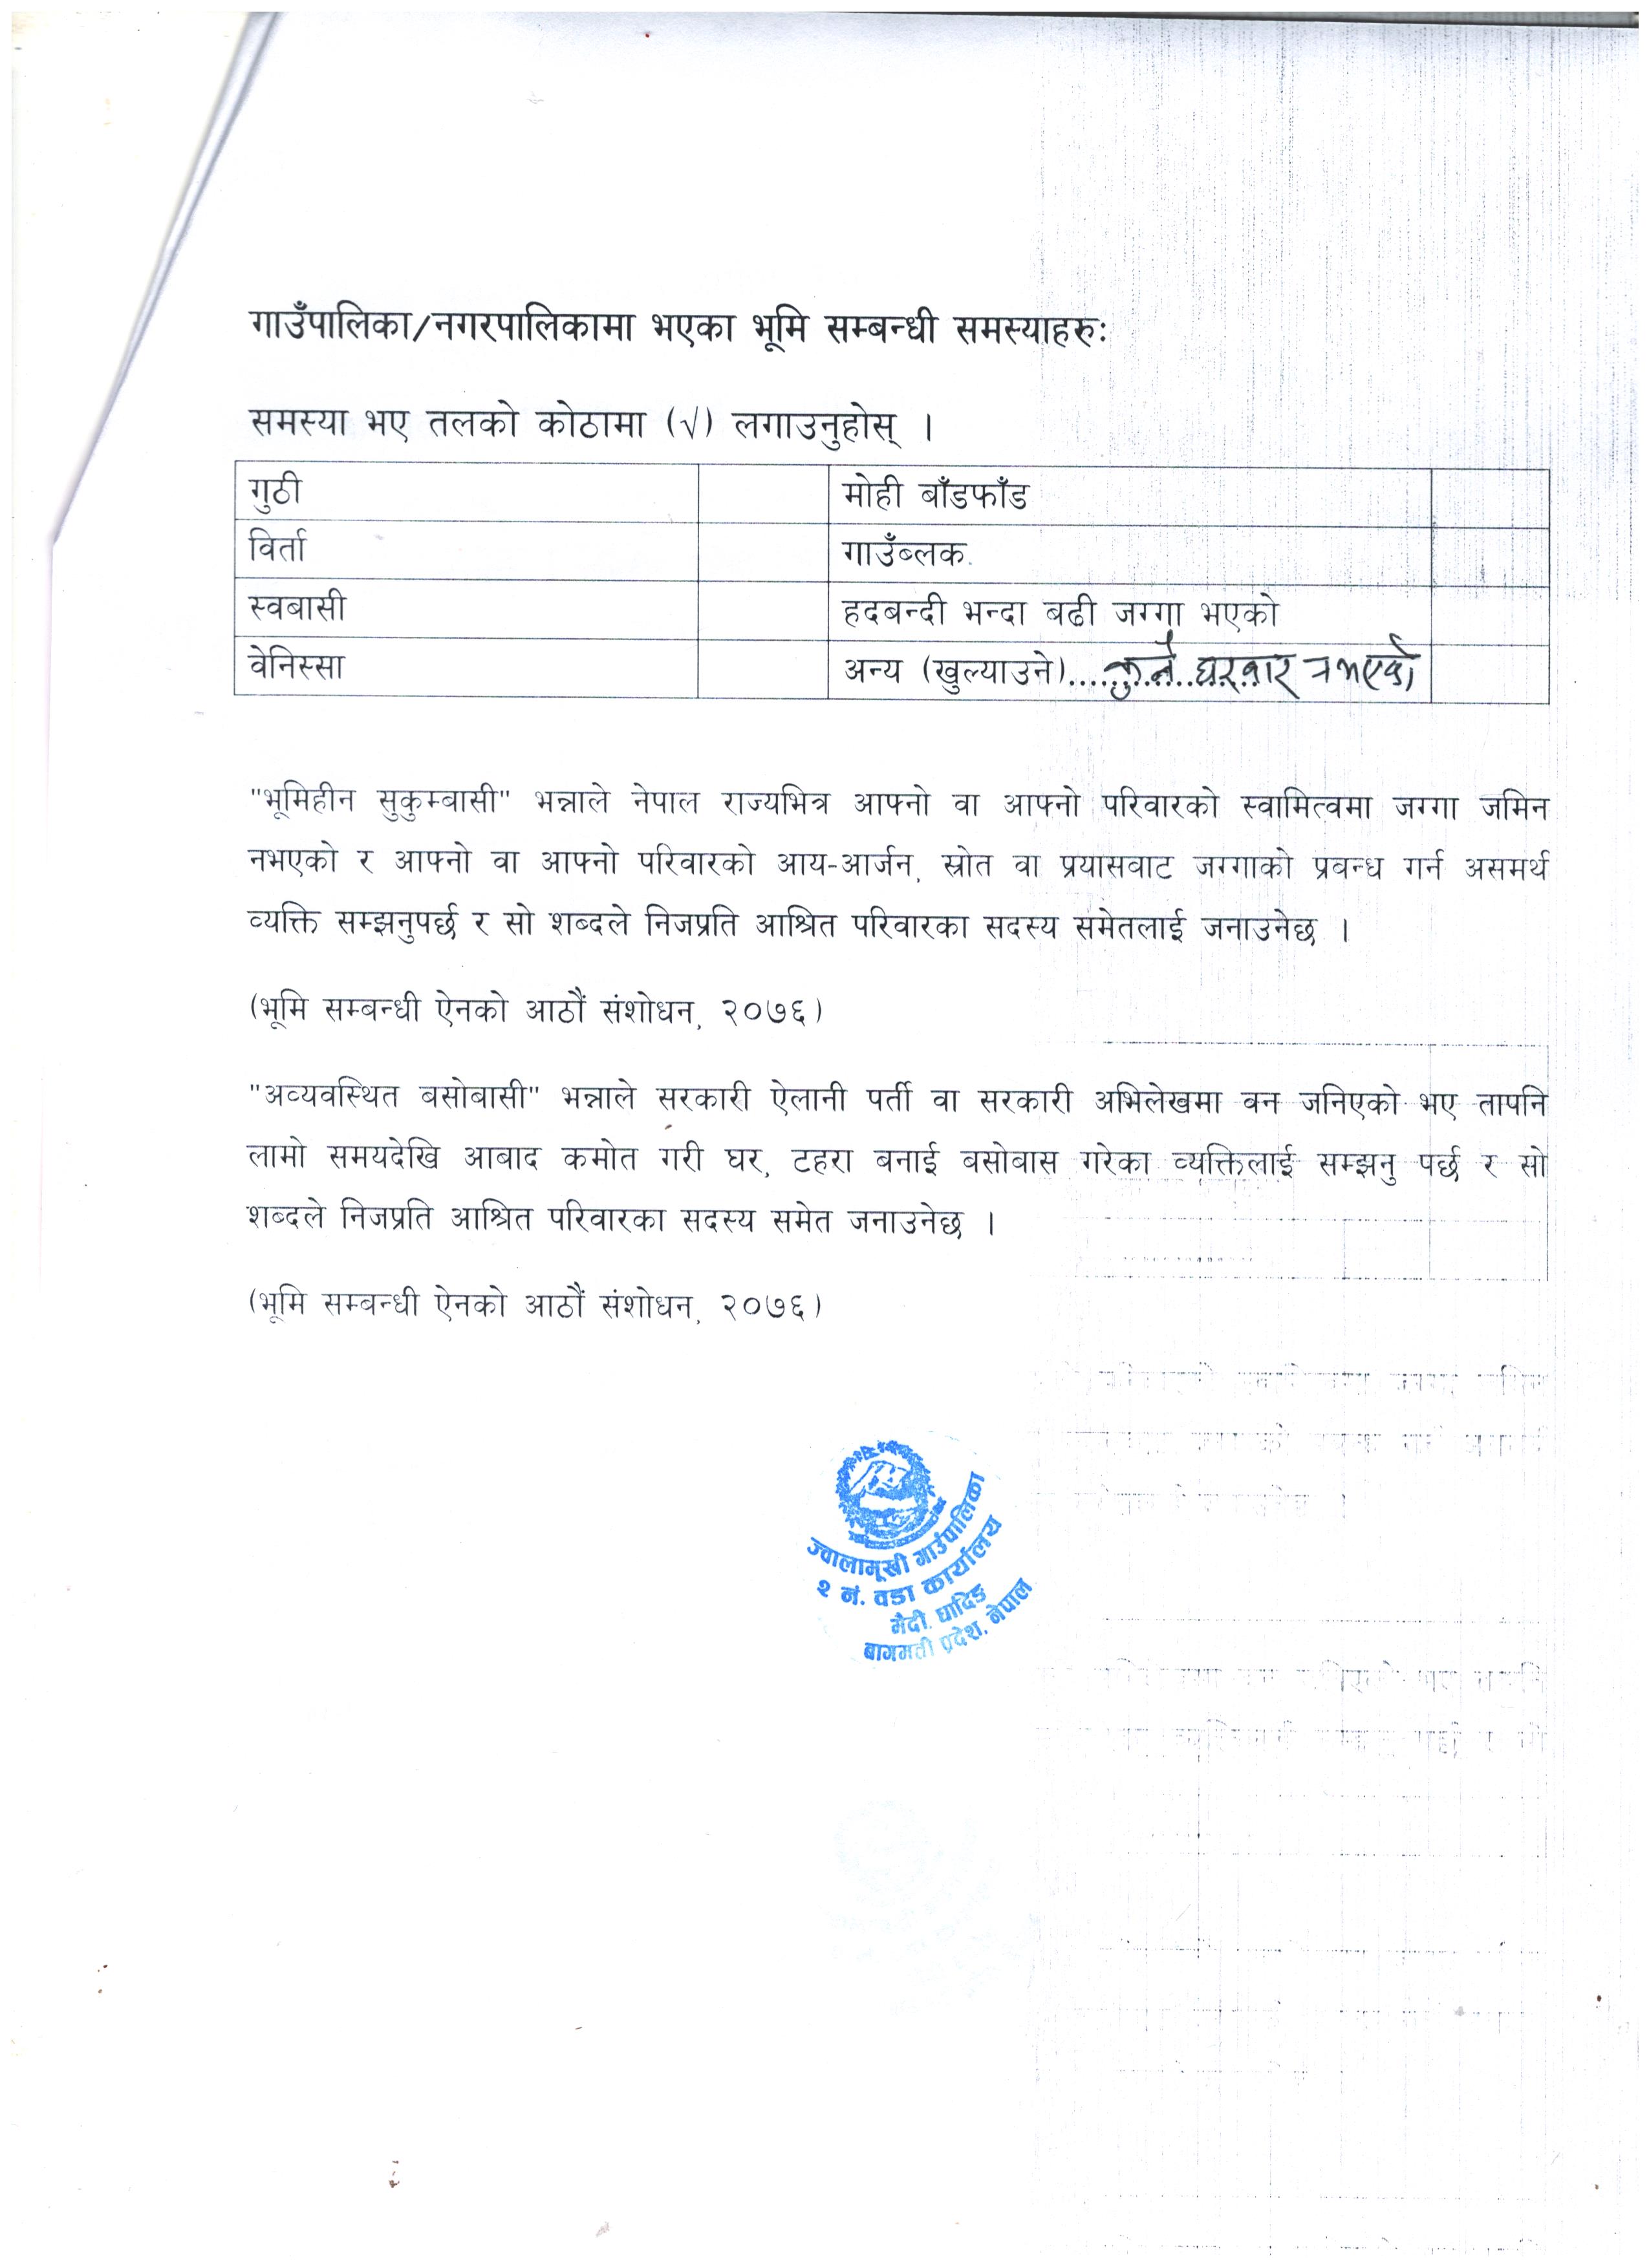 गाउँपालिका/नगरपालिकामा भएका भूमि सम्बन्धी समस्याहरुः
समस्या भए तलको कोठामा (√) लगाउनुहोस् ।
गुठी मोही बाँडफाँड
विर्ता गाउँब्लक.
स्वबासी हदबन्दी भन्दा बढी जग्गा भएको
वेनिस्सा अन्य (खुल्याउने)..... कुनै घरबार नभएको
"भूमिहीन सुकुम्बासी" भन्नाले नेपाल राज्यभित्र आफ्नो वा आफ्नो परिवारको स्वामित्वमा जग्गा जमिन
नभएको र आफ्नो वा आफ्नो परिवारको आय-आर्जन, स्रोत वा प्रयासवाट जग्गाको प्रवन्ध गर्न असमर्थ
व्यक्ति सम्झनुपर्छ र सो शब्दले निजप्रति आश्रित परिवारका सदस्य समेतलाई जनाउनेछ ।
(भूमि सम्बन्धी ऐनको आठौं संशोधन, २०७६)
"अव्यवस्थित बसोबासी" भन्नाले सरकारी ऐलानी पर्ती वा सरकारी अभिलेखमा वन जनिएको भए तापनि
लामो समयदेखि आबाद कमोत गरी घर, टहरा बनाई बसोबास गरेका व्यक्तिलाई सम्झनु पर्छ र सो
शब्दले निजप्रति आश्रित परिवारका सदस्य समेत जनाउनेछ ।
(भूमि सम्बन्धी ऐनको आठौं संशोधन, २०७६)
ज्वालामूखी गाउँपालिका
२ नं. वडा कार्यालय
मैदी, धादिङ
बागमती प्रदेश, नेपाल